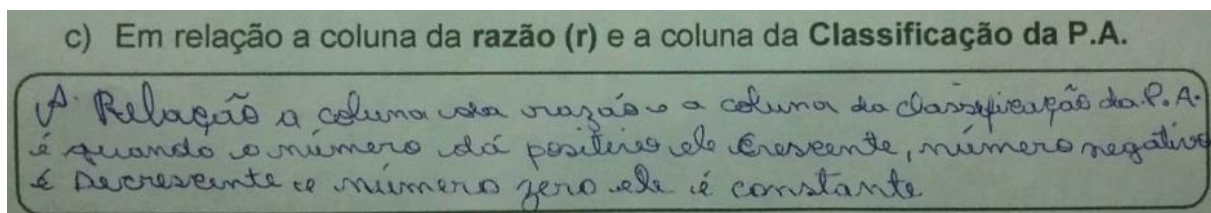 c) Em relação a coluna da razão (r) e a coluna da Classificação da P.A.
A Relação a coluna da razão e a coluna da classificação da P.A.
é quando o número dá positivo ele Crescente, número negativo
é Decrescente e número zero ele é constante